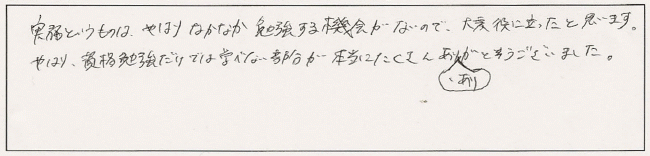 実務というものは、やはりなかなか勉強する機会がないので、大変役に立ったと思います。
やはり、資格勉強だけでは学べない部分が本当にたくさんありありがとうございました。